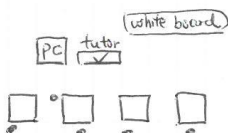 white board
PC tutor